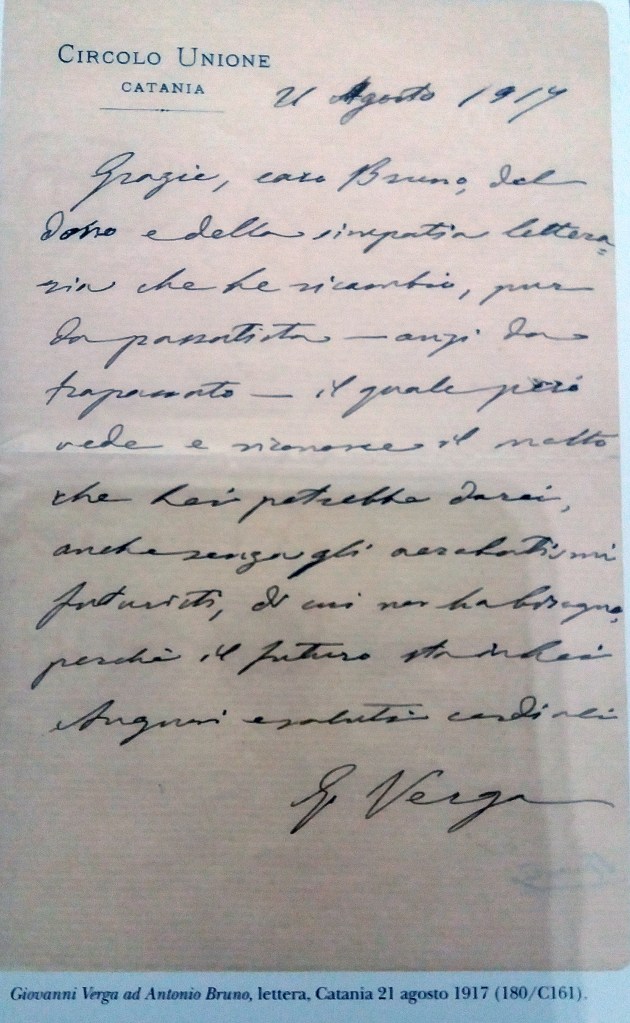 CIRCOLO UNIONE
CATANIA
21 Agosto 1917
Grazie, caro Bruno, del
dono e della simpatia lettera=
ria che le ricambio, pur
da passatista — anzi da
trapassato — il quale però
vede e riconosce il molto
che Lei potrebbe darci,
anche senza gli acrobatismi
futuristi, di cui non ha bisogno,
perchè il futuro sta in Lei
Auguri e saluti cordiali
G Verga
Giovanni Verga ad Antonio Bruno, lettera, Catania 21 agosto 1917 (180/C161).